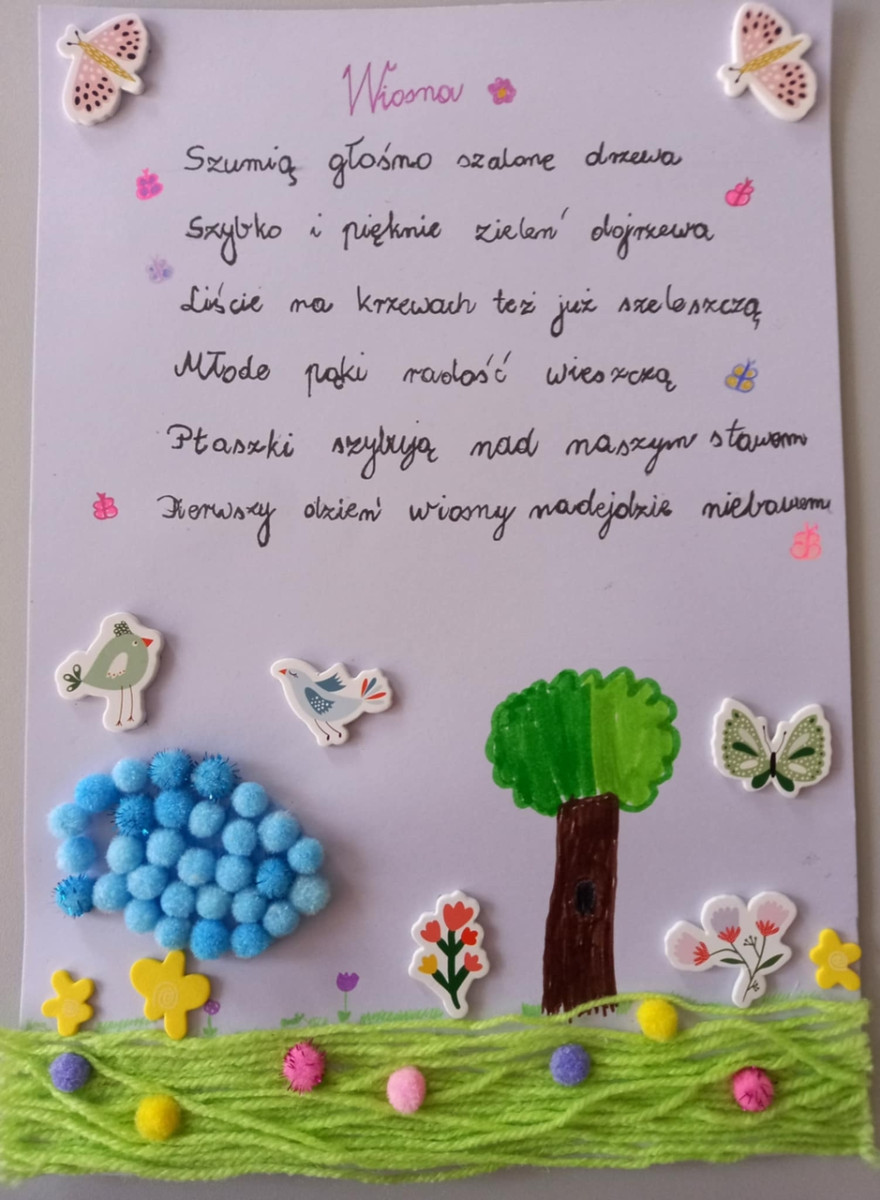 Wiosna
Szumią głośno szalone drzewa
Szybko i pięknie zieleń dojrzewa
Liście na krzewach też już szeleszczą
Młode pąki radość wieszczą
Ptaszki szybują nad naszym stawem
Pierwszy dzień wiosny nadejdzie niebawem